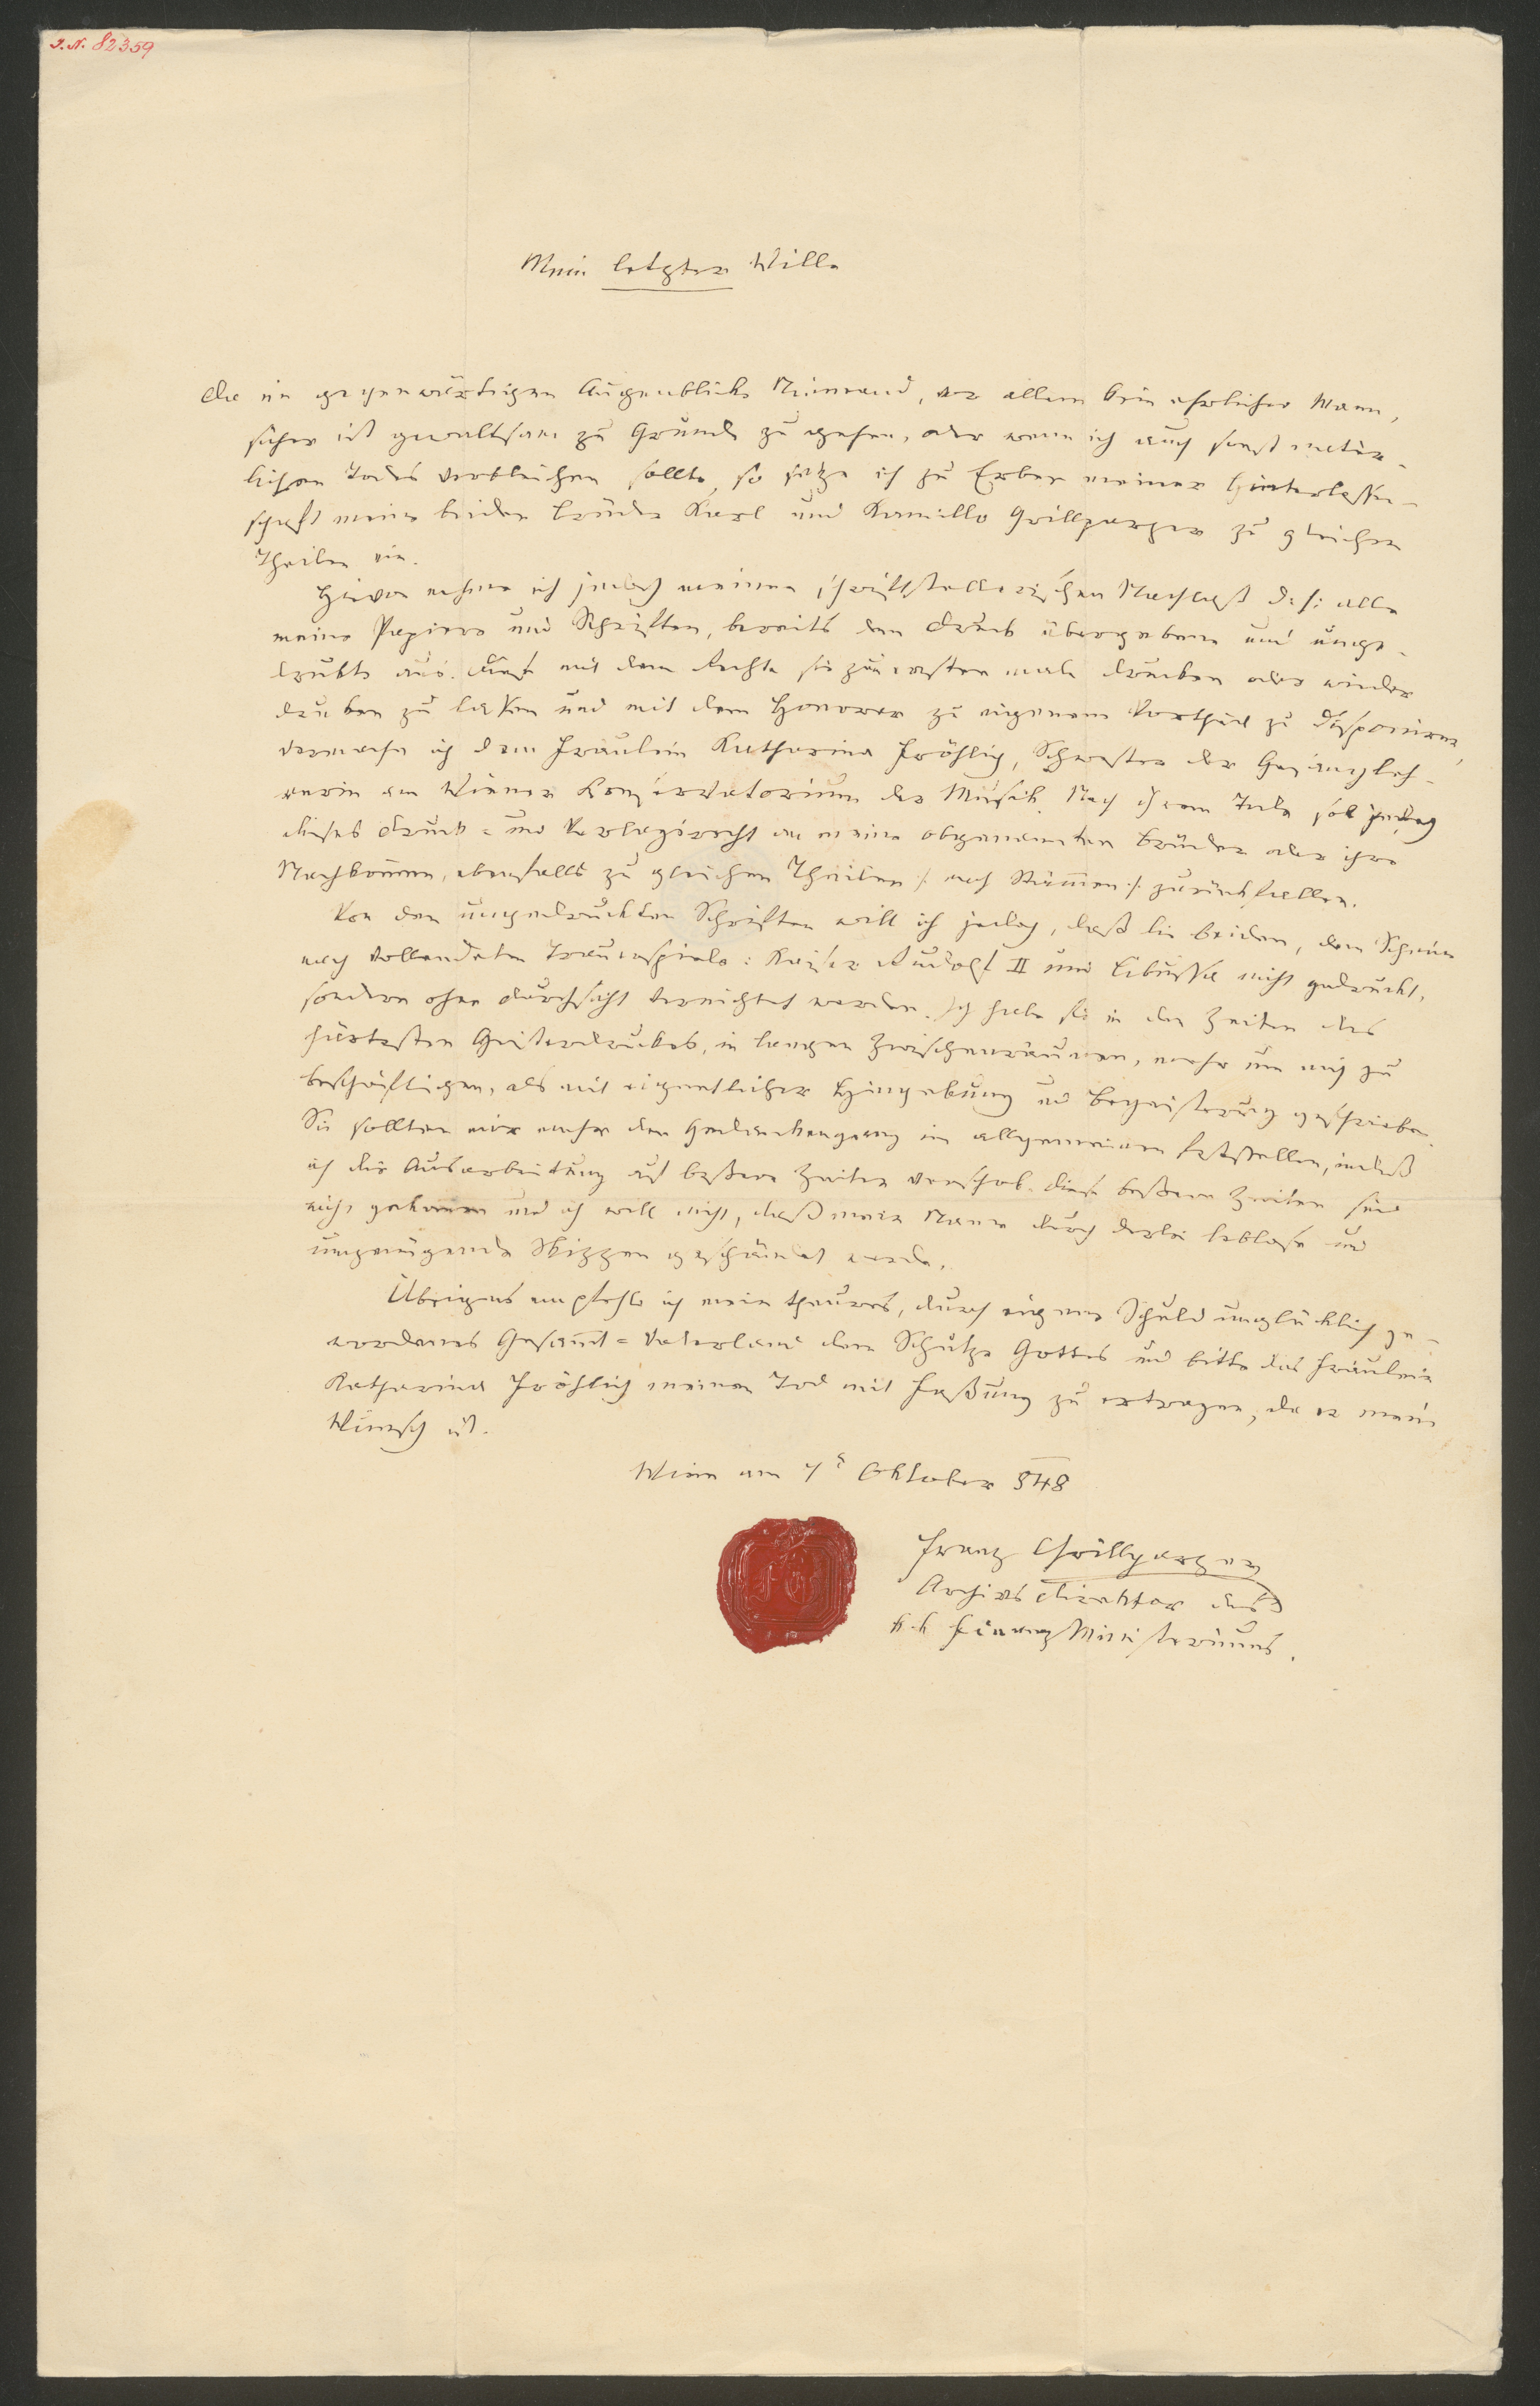 I.N. 82359
Mein letzter Wille
Da im gegenwärtigen Augenblicke Niemand, vor allem kein ehrlicher Mann,
sicher ist gewaltsam zu Grunde zu gehen, oder wenn ich auch sonst natür-
lichen Todes verbleichen sollte, so setze ich zu Erben meiner Hinterlassen-
schaft meine beiden Brüder Karl und Kamillo Grillparzer zu gleichen
Theilen ein.
Hievon nehme ich jedoch meinen schriftstellerischen Nachlaß d. h: alle
meine Papiere und Schriften, bereits dem Druck übergebene und unge-
druckte aus. Diese mit dem Rechte sie zum ersten male drucken oder wieder
drucken zu lassen und mit dem Honorar zu eigenem Vortheil zu disponiren,
vermache ich dem Fräulein Katharina Fröhlich, Schwester der Gesangleh-
rerin am Wiener Konservatorium der Musik. Nach ihrem Tode soll jedoch
dieses Druck- und Verlagsrecht an meine obgenannten Brüder oder ihre
Nachkom̅en, ebenfalls zu gleichen Theilen /: nach Stäm̅en :/ zurückfallen.
Von den ungedruckten Schriften will ich jedoch, daß die beiden, dem Scheine
nach vollendeten Trauerspiele: Kaiser Rudolf II und Libussa nicht gedruckt,
sondern ohne Durchsicht vernichtet werden. Ich habe sie in den Zeiten des
härtesten Geistesdruckes, in langen Zwischenräumen, mehr um mich zu
beschäftigen, als mit eigentlicher Hingebung und Begeisterung geschrieben.
Sie sollten mir mehr den Gedankengang im allgemeinen feststellen, indeß
ich die Ausarbeitung auf beßere Zeiten verschob. Diese beßeren Zeiten sind
nicht gekommen und ich will nicht, daß mein Name durch derlei leblose und
ungenügende Skizzen geschändet werde.
Übrigens empfehle ich mein theures, durch eigene Schuld unglücklich ge-
wordenes Gesam̅t-Vaterland dem Schutze Gottes und bitte das Fräulein
Katharina Fröhlich meinen Tod mit Faßung zu ertragen, da er mein
Wunsch ist.
Wien am 7t Oktober 848
Franz Grillparzer
Archivsdirektor des
k.k Finanz Ministeriums.
FG